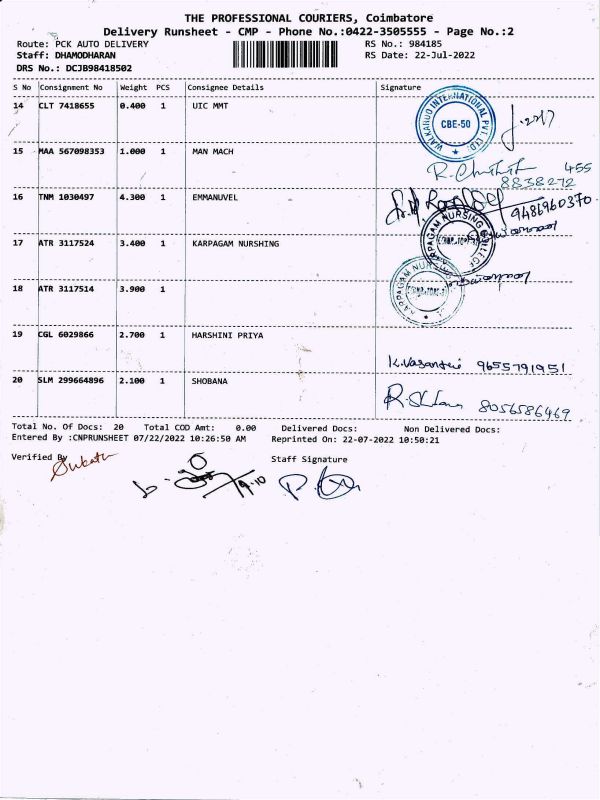 THE PROFESSIONAL COURIERS, Coimbatore
Delivery Runsheet - CMP - Phone No.:0422-3505555 - Page No.:2
Route: PCK AUTO DELIVERY RS No.: 984185
Staff: DHAMODHARAN RS Date: 22-Jul-2022
DRS No.: DCJB98418502
S No Consignment No Weight PCS Consignee Details Signature
14 CLT 7418655 0.400 1 UIC MMT
WALKAROO INTERNATIONAL PVT. LTD. CBE-50
15 MAA 567098353 1.000 1 MAN MACH
455
8838272
16 TNM 1030497 4.300 1 EMMANUVEL
9486960370
17 ATR 3117524 3.400 1 KARPAGAM NURSHING
KARPAGAM NURSING COLLEGE
18 ATR 3117514 3.900 1
KARPAGAM NURSING
19 CGL 6029866 2.700 1 HARSHINI PRIYA
K.Vasanthi 9655791951
20 SLM 299664896 2.100 1 SHOBANA
8056586469
Total No. Of Docs: 20 Total COD Amt: 0.00 Delivered Docs: Non Delivered Docs:
Entered By :CNPRUNSHEET 07/22/2022 10:26:50 AM Reprinted On: 22-07-2022 10:50:21
Verified By Staff Signature